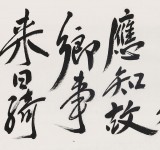 應知故
鄉事
来日綺